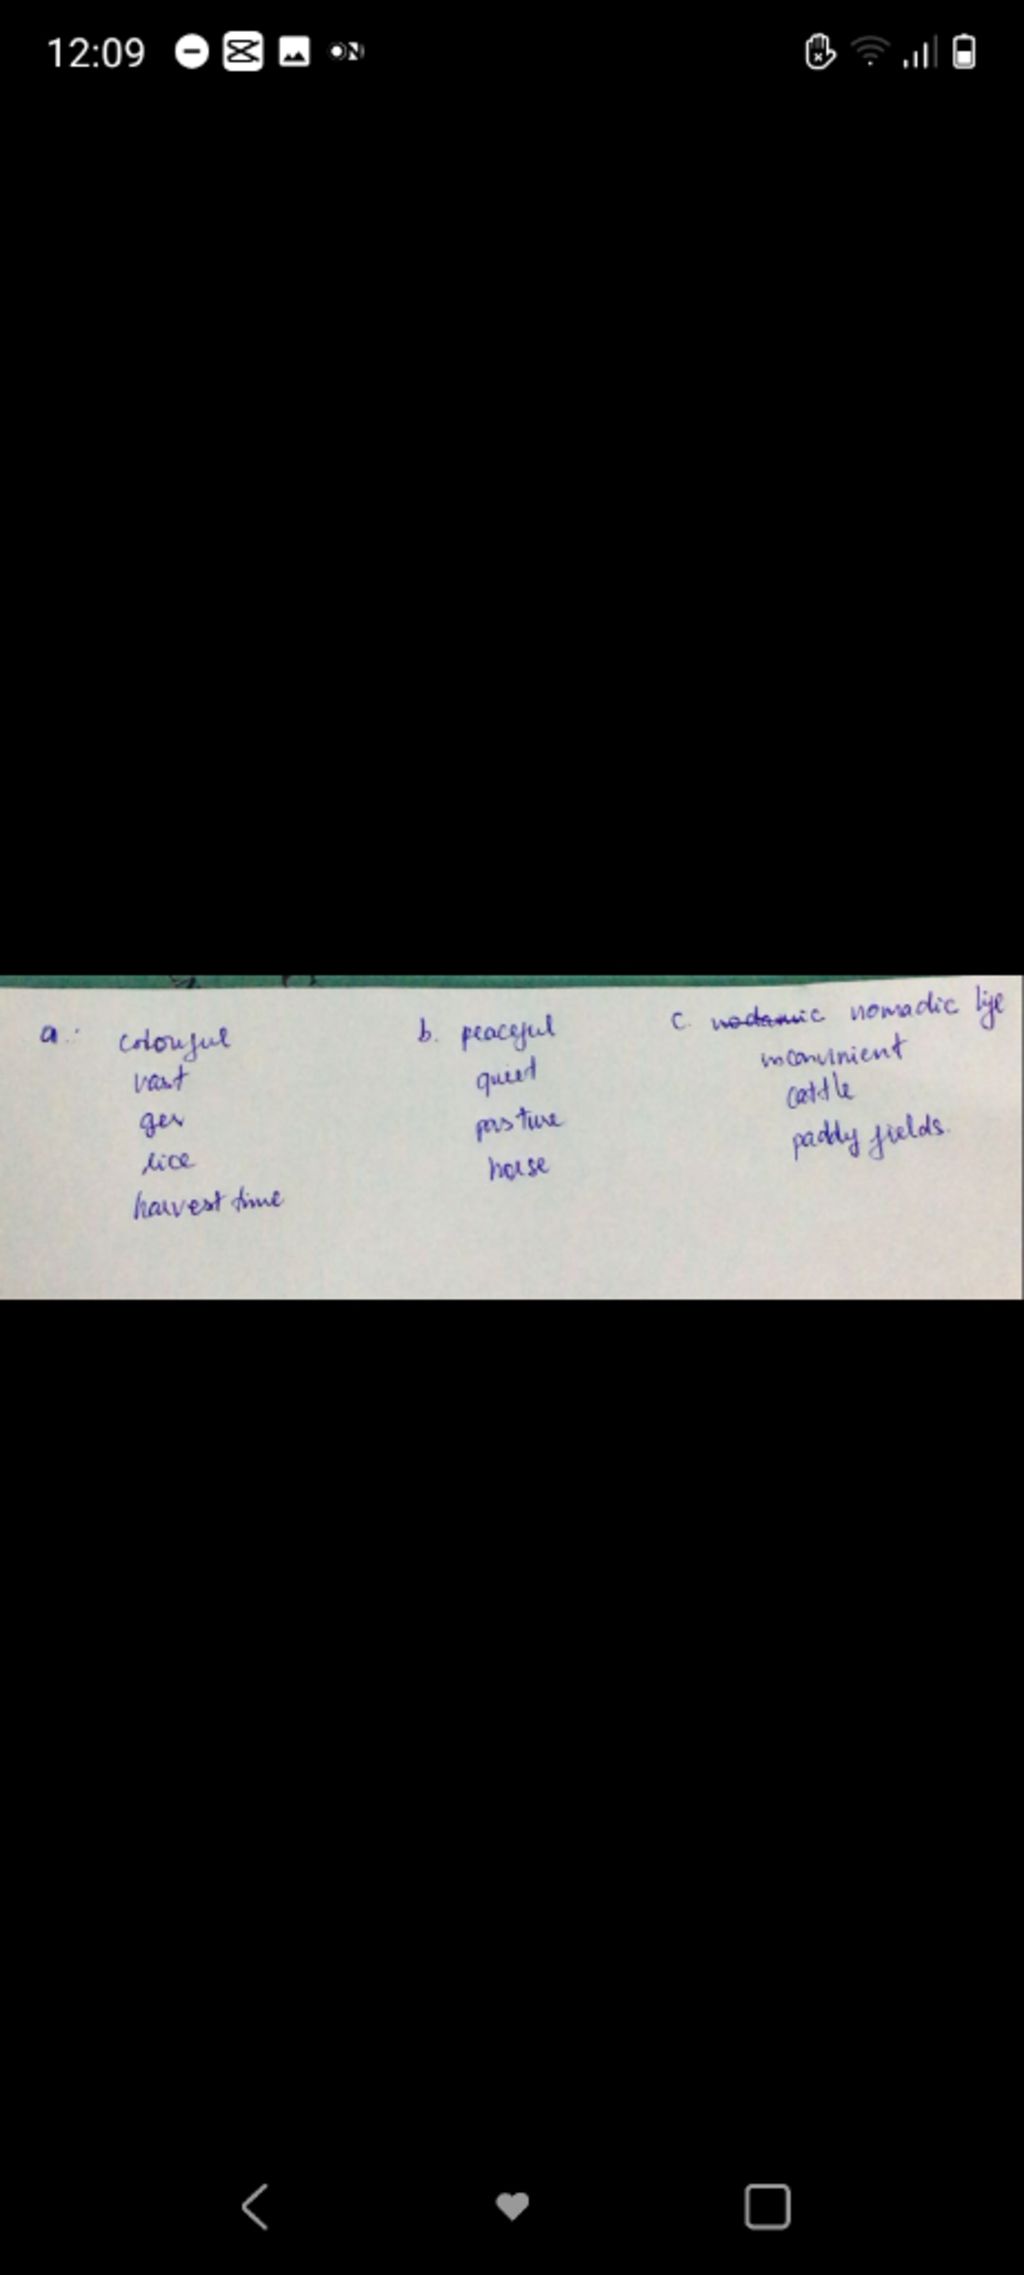 12:09
a. colourful
vast
ger
rice
harvest time
b. peaceful
quiet
pasture
horse
c. nodamic nomadic life
inconvinient
cattle
paddy fields.